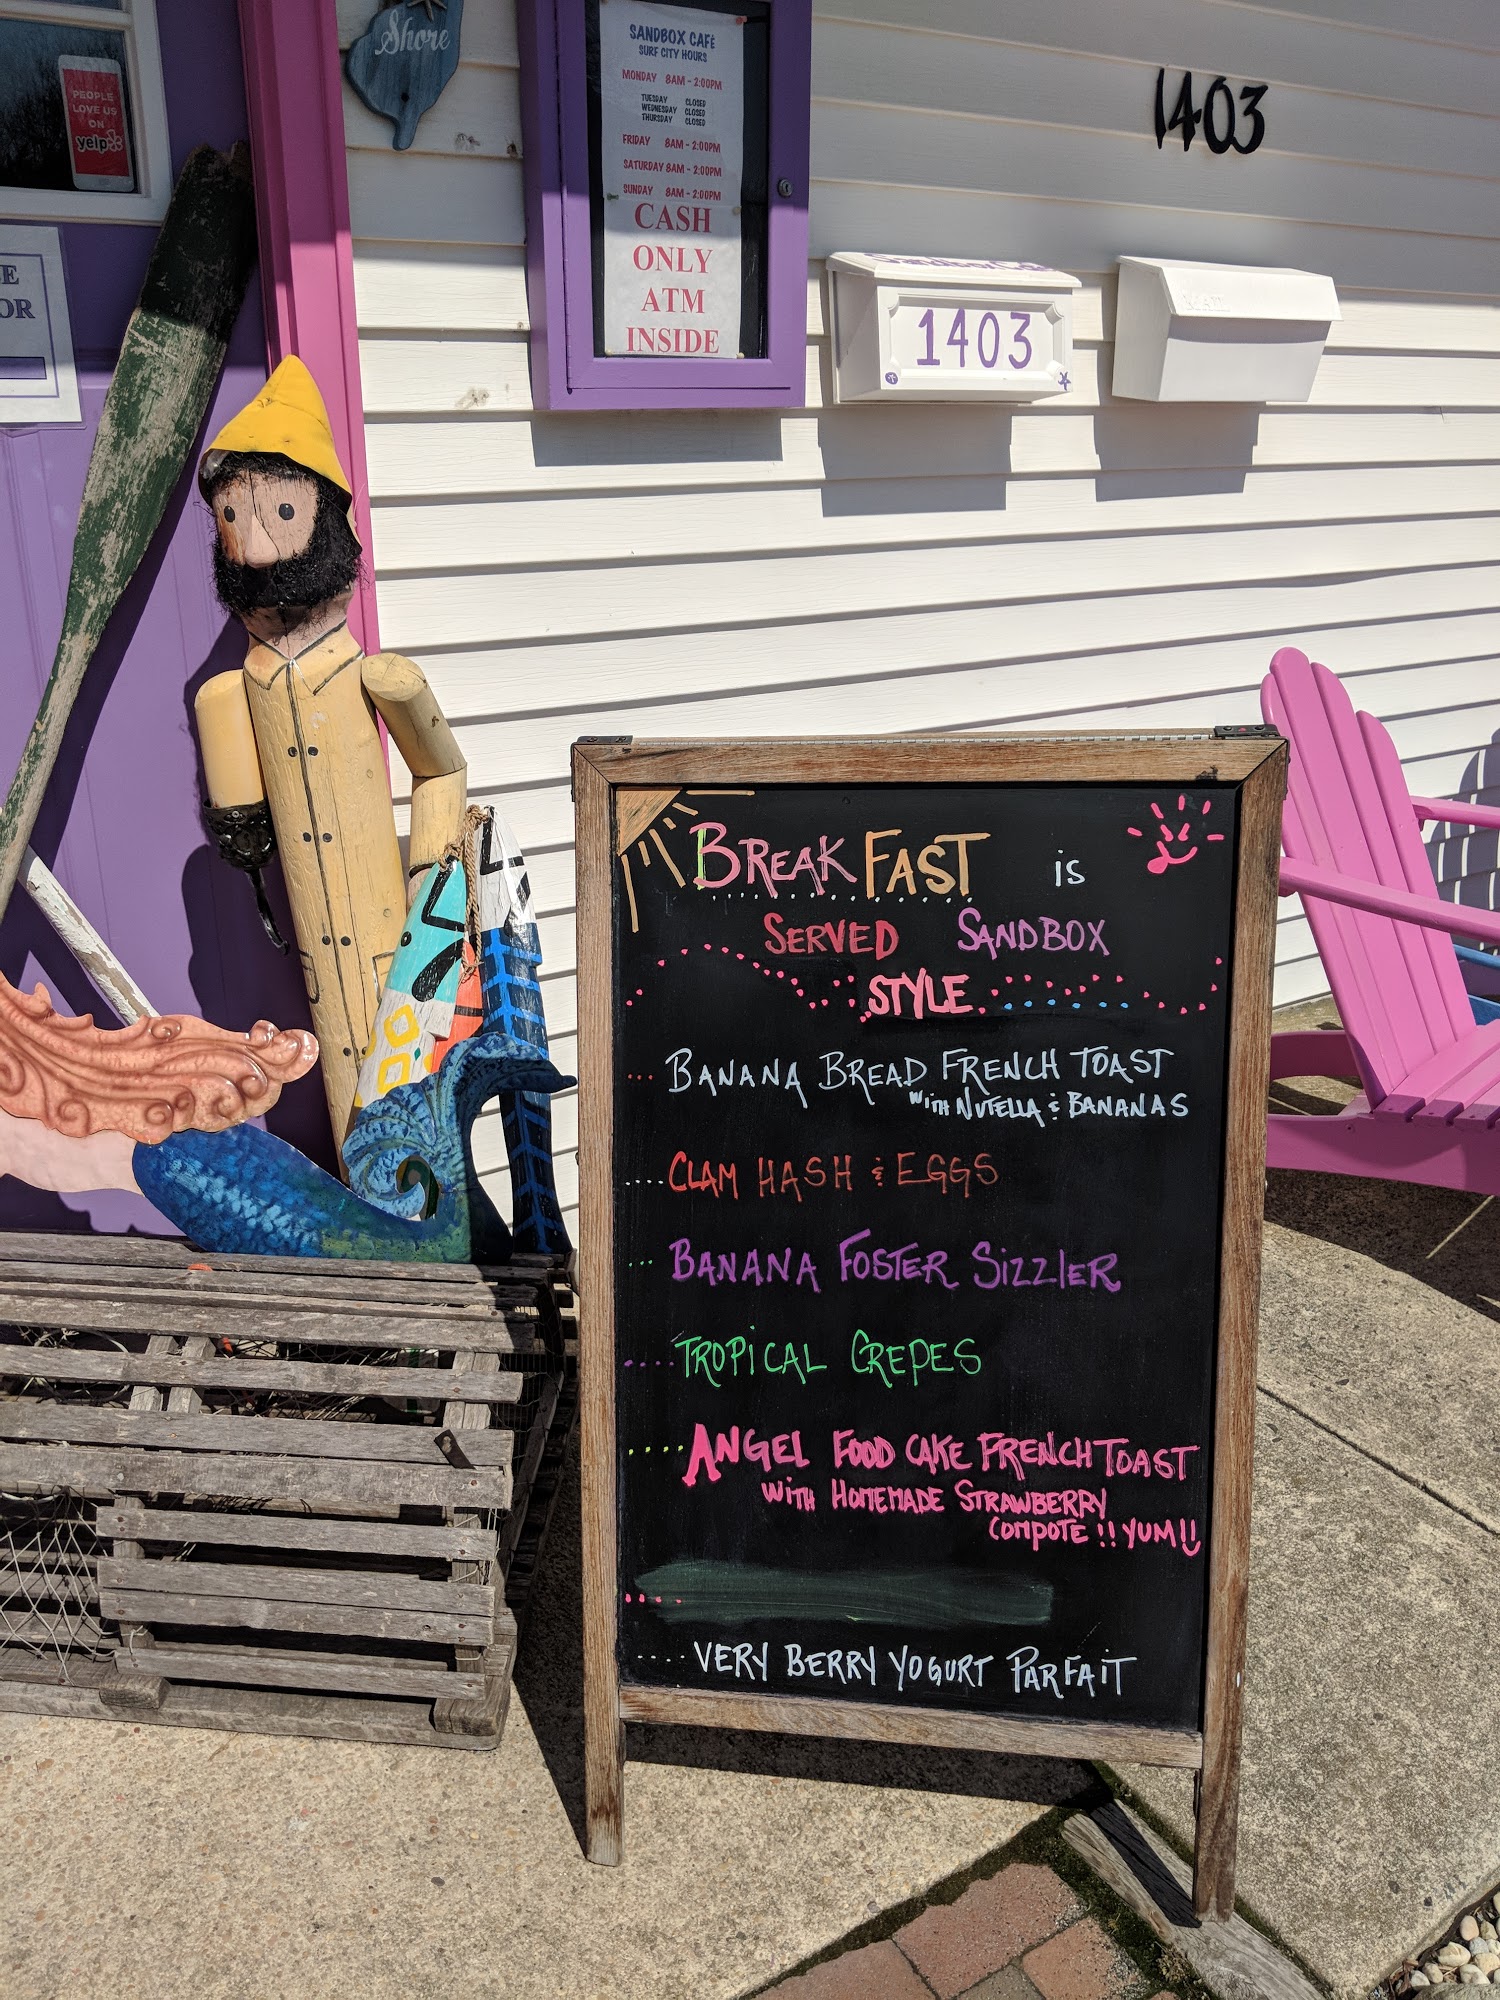 Shore
PEOPLE
LOVE US
ON
yelp
OR
SANDBOX CAFE
SURF CITY HOURS
MONDAY 8AM - 2:00PM
TUESDAY CLOSED
WEDNESDAY CLOSED
THURSDAY CLOSED
FRIDAY 8AM - 2:00PM
SATURDAY 8AM - 2:00PM
SUNDAY 8AM - 2:00PM
CASH
ONLY
ATM
INSIDE
1403
Sandbox Cafe
1403
MAIL
BREAKFAST is
SERVED SANDBOX
STYLE
BANANA BREAD FRENCH TOAST
WITH NUTELLA & BANANAS
CLAM HASH & EGGS
BANANA FOSTER SIZZLER
TROPICAL CREPES
ANGEL FOOD CAKE FRENCH TOAST
WITH HOMEMADE STRAWBERRY
COMPOTE !! YUM!!
VERY BERRY YOGURT PARFAIT